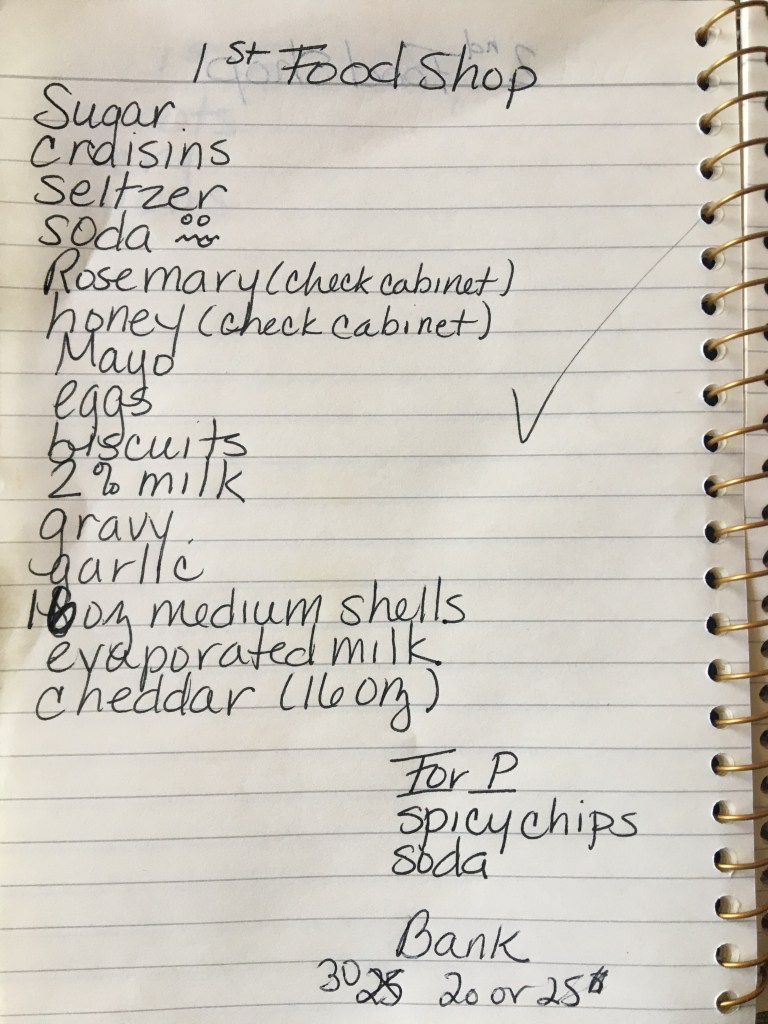 1st Food Shop
Sugar
craisins
seltzer
soda
Rosemary (check cabinet)
honey (check cabinet)
Mayo
eggs
biscuits
2% milk
gravy
garlic
16oz medium shells
evaporated milk
cheddar (16 oz)
For P
spicy chips
soda
Bank
30 25 20 or 25